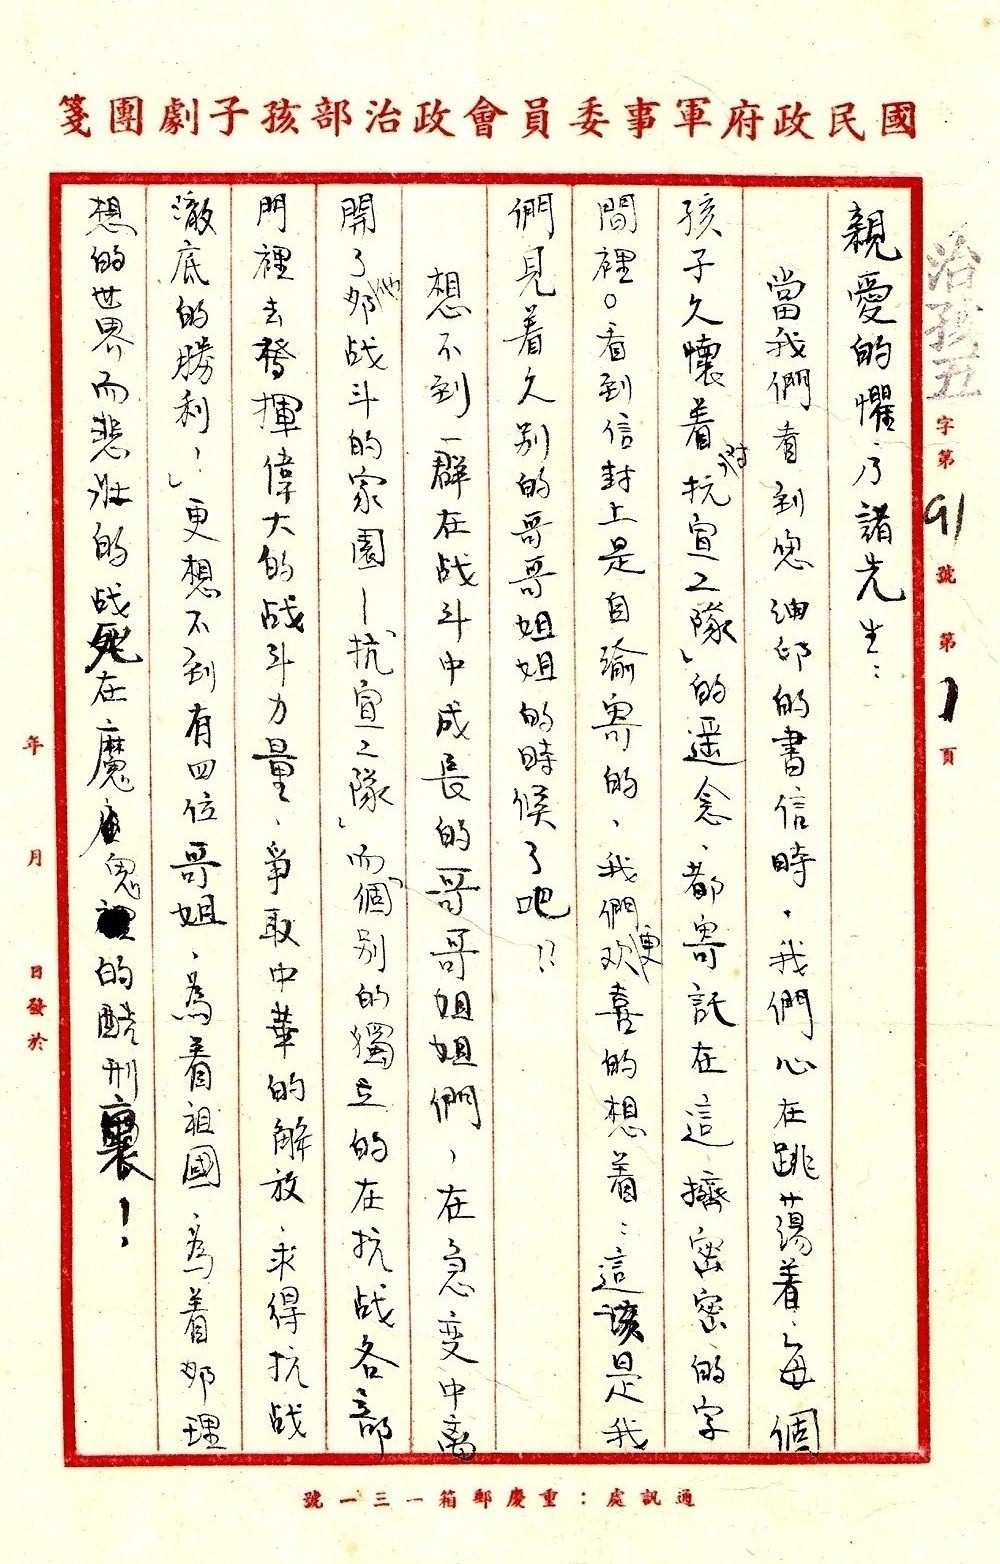 國民政府軍事委員會政治部孩子劇團箋
治孩五字第91號第1頁
親愛的懼之乃諸先生：
當我們看到您油印的書信時，我們心在跳蕩着，每個
孩子久懷着對抗宣工隊」的遥念、都寄託在這擠密密的字
間裡。看到信封上是自瑜寄的，我們更欢喜的想着：這該是我
們見着久别的哥哥姐姐的時候了吧!!
想不到一群在战斗中成長的哥哥姐姐們，在急变中离
開了他那战斗的家園—「抗宣工隊」而個别的獨立的在抗战各部
門裡去發揮偉大的战斗力量，爭取中華的解放求得抗战
澈底的勝利！」更想不到有四位哥姐、為着祖國、為着那理
想的世界而悲壯的战死在魔鬼的酷刑裏！
年 月 日發於
通訊處：重慶郵箱一三一號